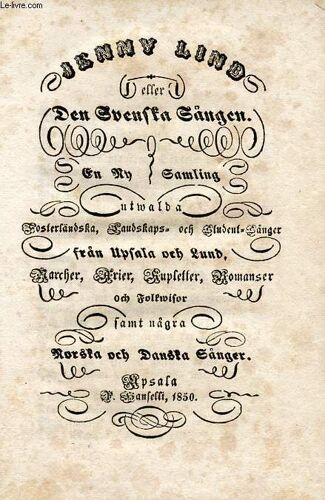 Le-livre.com
JENNY LIND
eller
Den Svenska Sången.
En Ny Samling
utwalda
Fosterländska, Landskaps- och Student-Sånger
från Upsala och Lund,
Marcher, Arier, Kupletter, Romanser
och Folkwisor
samt några
Norska och Danska Sånger.
Upsala
P. Hanselli, 1850.